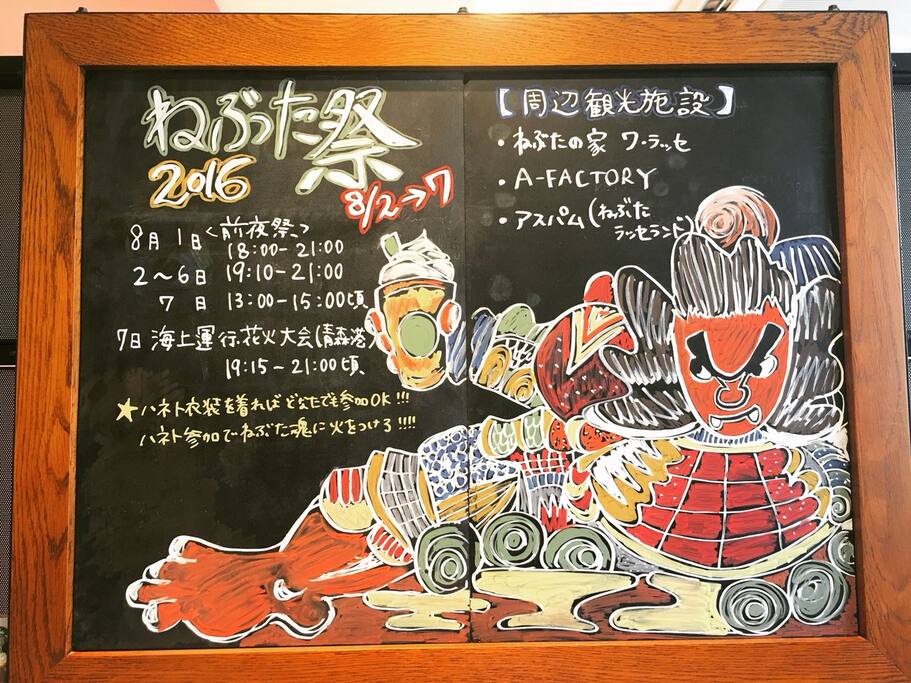 ねぶった祭
2016
8/2→7
8月1日<前夜祭>
18:00-21:00
2~6日 19:10-21:00
7日 13:00-15:00頃
7日 海上運行.花火大会(青森港)
19:15-21:00頃.
★ハネト衣装を着ればどなたでも参加OK!!!
ハネト参加でねぶた魂に火をつけろ!!!!
【周辺観光施設】
・ねぶたの家 ワ・ラッセ
・A-FACTORY
・アスパム(ねぶた
ラッセランド)